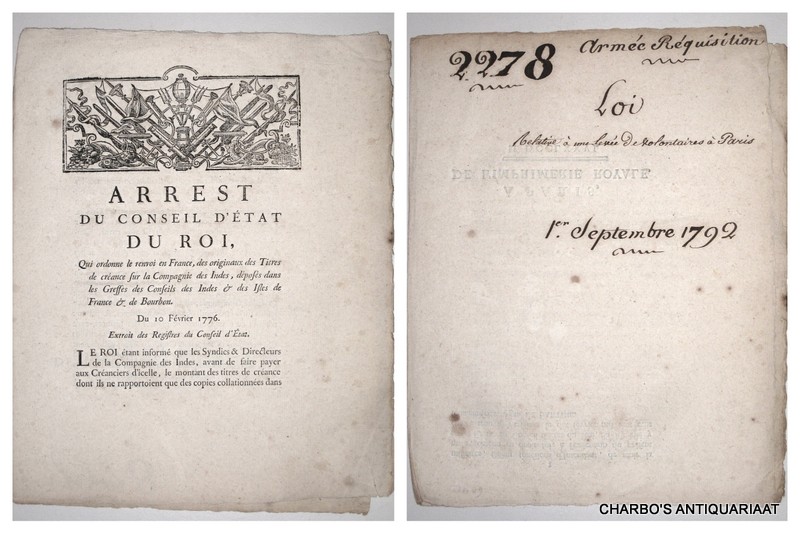 ARREST
DU CONSEIL D'ÉTAT
DU ROI,
Qui ordonne le renvoi en France, des originaux des Titres
de créance sur la Compagnie des Indes, déposés dans
les Greffes des Conseils des Indes & des Isles de
France & de Bourbon.
Du 10 Février 1776.
Extrait des Registres du Conseil d'État.
LE ROI étant informé que les Syndics & Directeurs
de la Compagnie des Indes, avant de faire payer
aux Créanciers d'icelle, le montant des titres de créance
dont ils ne rapportoient que des copies collationnées dans
2278
Armée Réquisition
Loi
Relative à une levée de volontaires à Paris
DE L'IMPRIMERIE ROYALE
A PARIS,
1.er Septembre 1792
CHARBO'S ANTIQUARIAAT